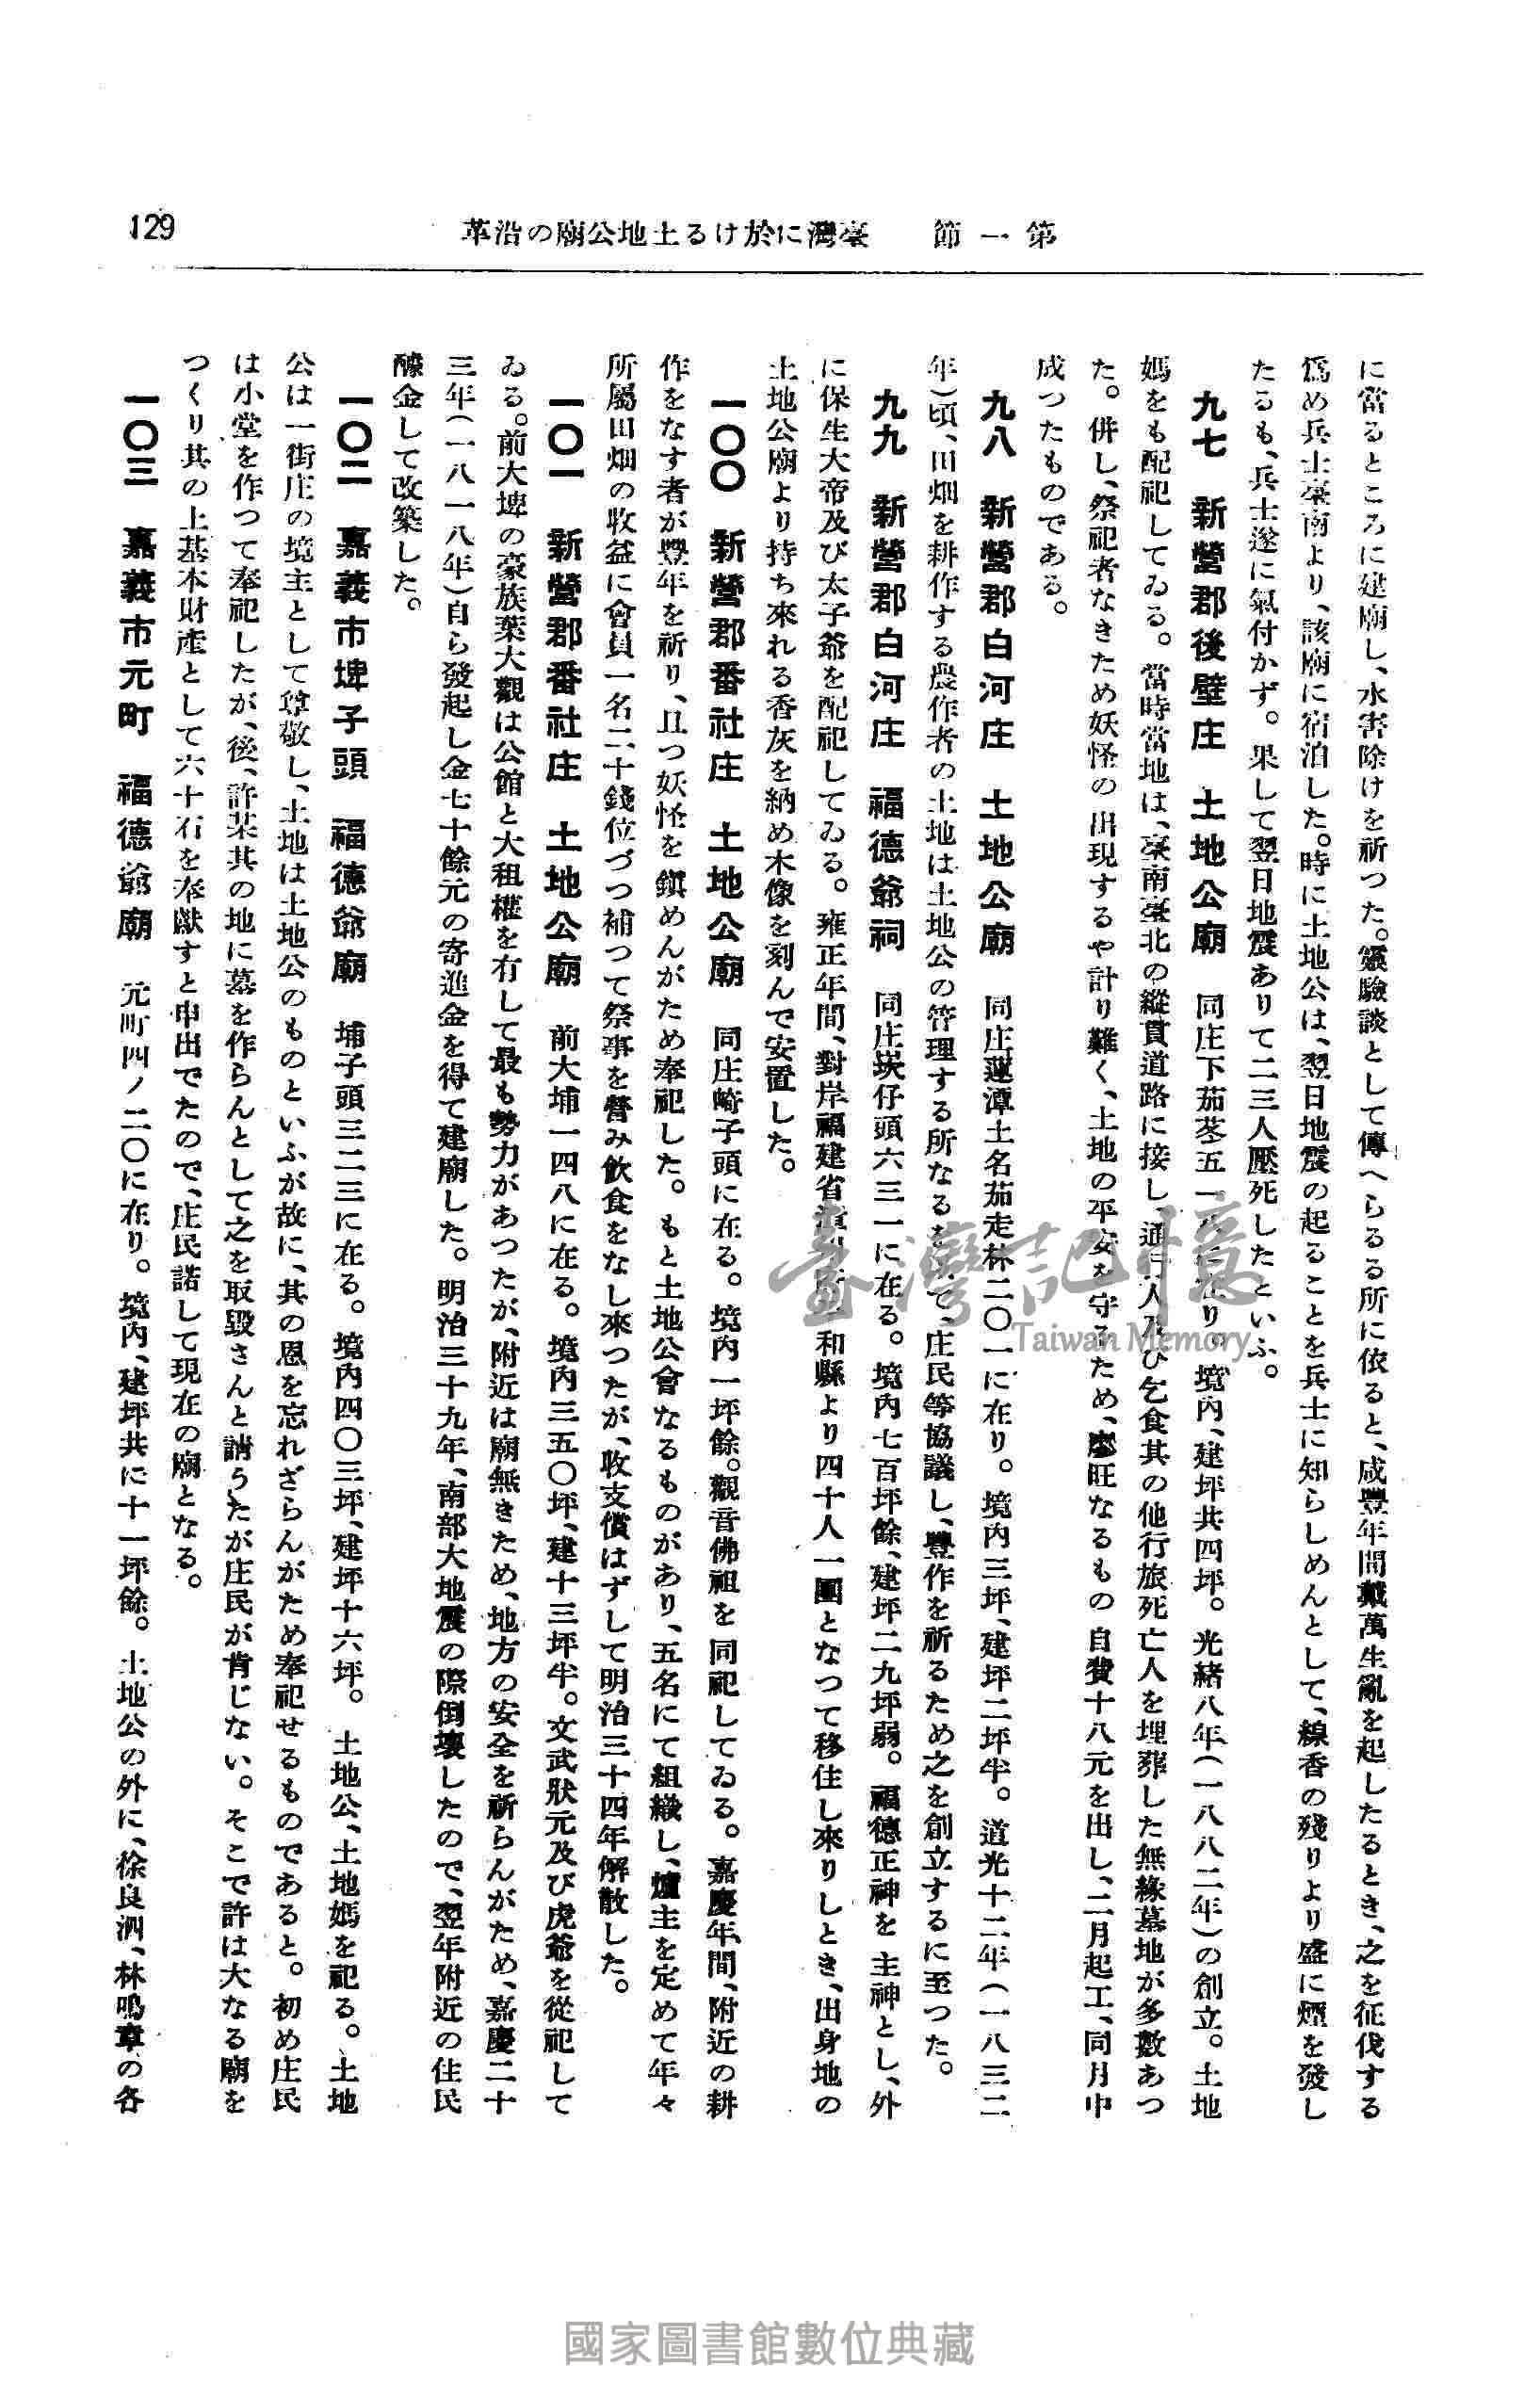 129
革沿の廟公地土るけ於に灣臺 節一第
に當るところに建廟し、水害除けを祈つた。靈驗談として傳へらるる所に依ると、咸豐年間戴萬生亂を起したるとき、之を征伐する
爲め兵士臺南より、該廟に宿泊した。時に土地公は、翌日地震の起ることを兵士に知らしめんとして、線香の殘りより盛に煙を發し
たるも、兵士遂に氣付かず。果して翌日地震ありて二三人壓死したといふ。
九七 新營郡後壁庄 土地公廟 同庄下茄苳五一 在り。境內、建坪共四坪。光緖八年(一八八二年)の創立。土地
媽をも配祀してゐる。當時當地は、臺南臺北の縱貫道路に接し、通行人及び乞食其の他行旅死亡人を埋葬した無緣墓地が多數あつ
た。併し、祭祀者なきため妖怪の出現するや計り難く、土地の平安を守るため、廖旺なるもの自費十八元を出し、二月起工、同月中
成つたものである。
九八 新營郡白河庄 土地公廟 同庄蓮潭土名茄走林二〇一に在り。境內三坪、建坪二坪半。道光十二年(一八三二
年)頃、田畑を耕作する農作者の土地は土地公の管理する所なるを て、庄民等協議し、豐作を祈るため之を創立するに至つた。
九九 新營郡白河庄 福德爺祠 同庄崁仔頭六三一に在る。境內七百坪餘、建坪二九坪弱。福德正神を主神とし、外
に保生大帝及び太子爺を配祀してゐる。雍正年間、對岸福建省 和縣より四十人一團となつて移住し來りしとき、出身地の
土地公廟より持ち來れる香灰を納め木像を刻んで安置した。
一〇〇 新營郡番社庄 土地公廟 同庄崎子頭に在る。境內一坪餘。觀音佛祖を同祀してゐる。嘉慶年間、附近の耕
作をなす者が豐年を祈り、且つ妖怪を鎭めんがため奉祀した。もと土地公會なるものがあり、五名にて組織し、爐主を定めて年々
所屬田畑の收益に會員一名二十錢位づつ補つて祭事を營み飮食をなし來つたが、收支償はずして明治三十四年解散した。
一〇一 新營郡番社庄 土地公廟 前大埔一四八に在る。境內三五〇坪、建十三坪半。文武狀元及び虎爺を從祀して
ゐる。前大埤の豪族葉大觀は公館と大租權を有して最も勢力があつたが、附近は廟無きため、地方の安全を祈らんがため、嘉慶二十
三年(一八一八年)自ら發起し金七十餘元の寄進金を得て建廟した。明治三十九年、南部大地震の際倒壞したので、翌年附近の住民
醵金して改築した。
一〇二 嘉義市埤子頭 福德爺廟 埔子頭三二三に在る。境內四〇三坪、建坪十六坪。土地公、土地媽を祀る。土地
公は一街庄の境主として尊敬し、土地は土地公のものといふが故に、其の恩を忘れざらんがため奉祀せるものであると。初め庄民
は小堂を作つて奉祀したが、後、許某其の地に墓を作らんとして之を取毀さんと請うたが庄民が肯じない。そこで許は大なる廟を
つくり其の上基本財產として六十石を奉獻すと申出でたので、庄民諾して現在の廟となる。
一〇三 嘉義市元町 福德爺廟 元町四ノ二〇に在り。境內、建坪共に十一坪餘。土地公の外に、徐良泗、林鳴章の各
臺灣記憶
Taiwan Memory
國家圖書館數位典藏